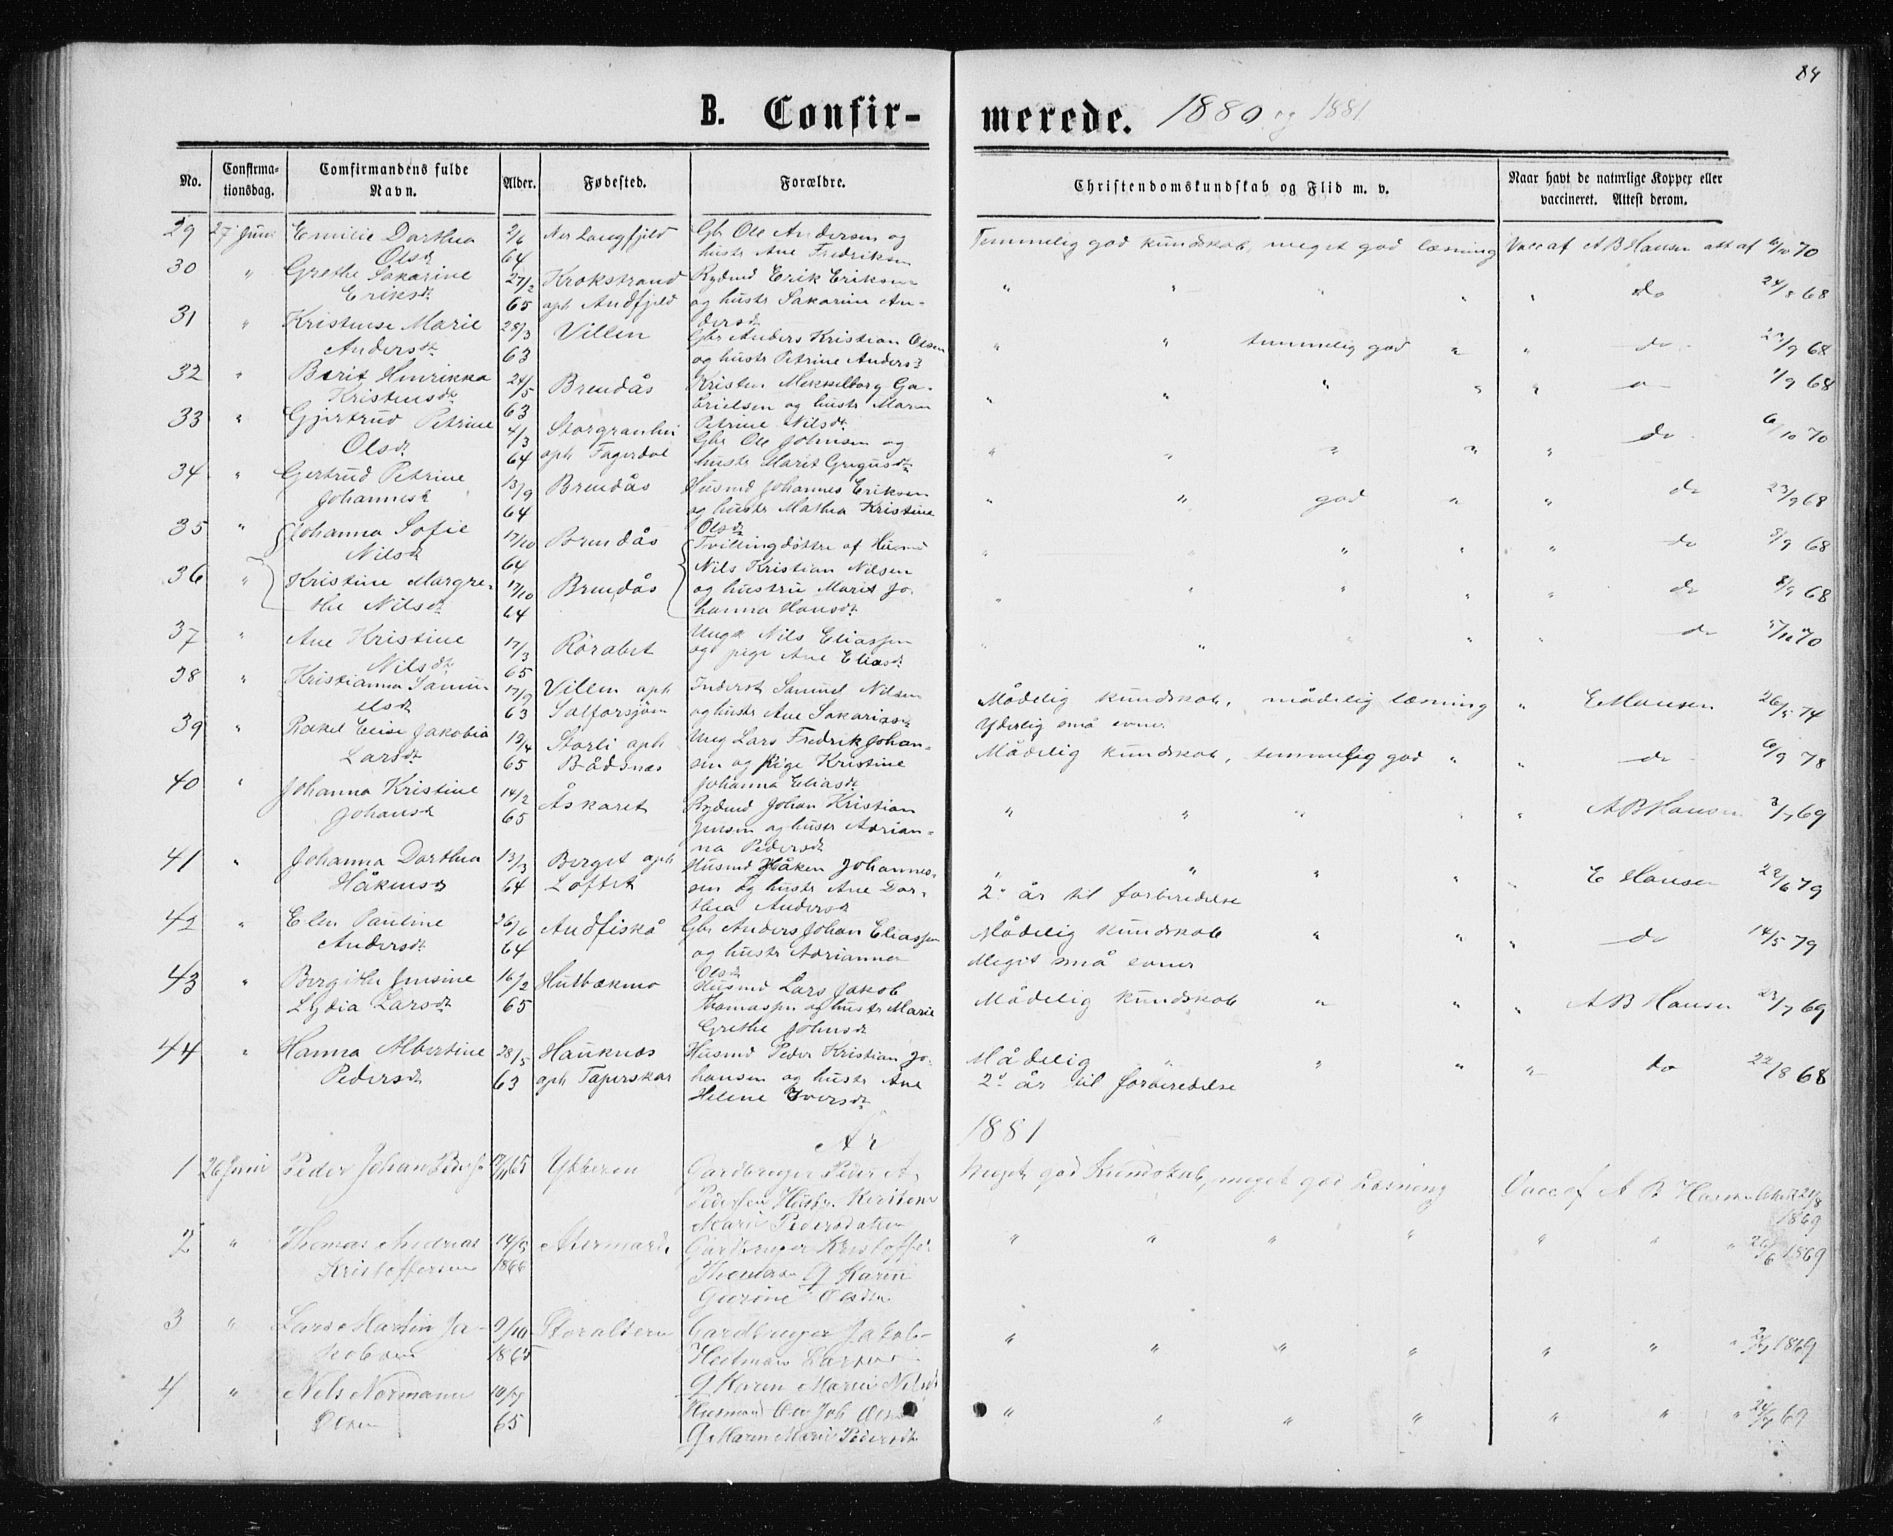 84
B. Confirmerede. 1880 og 1881
No. Confirmationsdag. Comfirmandens fulde Navn. Alder. Fødested. Forældre. Christendomskundskab og Flid m. v. Naar havt de naturlige Kopper eller vaccineret. Attest derom.
29 27 Juni Emilie Dorthea Olsdt 2/6 64 Langfjeld Gbr Ole Andersen og hustr Ane Fredriksen Temmelig god kundskab, meget god læsning Vacc af A B Hansen att af 6/10 70
30 " Grethe Sakarine Eriksdt 27/2 65 Krokstrand oph Andfjeld Rydmd Erik Eriksen og hustr Sakarine Andersdt " " " " " do 24/8 68
31 " Kristense Marie Andersdt 28/3 63 Villen Gbr Anders Kristian Olsen og hustr Petrine Andersdt " " temmelig god " " do 23/9 68
32 " Berit Henrikka Kristensdt 24/5 63 Brendås Kristen Mekkelborg Gabrielsen og hustr Maren Petrine Nilsdt " " " " " 1/9 68
33 " Gjertrud Petrine Olsdt 4/3 64 Storgranhei oph Fagerdal Gbr Ole Johnsen og hustr Marit Gregusdt " " " " " do 6/10 70
34 " Gertrud Petrine Johannesdt 13/9 64 Brendås Husmd Johannes Eriksen og hustr Mathea Kristine Olsdt " " god " " do 23/9 68
35 " Johanna Sofie Nilsdt 17/10 64 Brendås Tvillingdøttre af Husmd Nils Kristian Nilsen " " " " " do 8/9 68
36 " Kristine Margrethe Nilsdt 17/10 64 Brendås og hustru Marit Johanna Hansdt " " " " " do 8/9 68
37 " Ane Kristine Nilsdt 17/3 65 Rørabet Ungk Nils Eliassen og pige Ane Eliasdt " " " " " do 70
38 " Kristianna Samuelsdt 17/9 63 Villen oph Salforsjøen Inderst Samuel Nilsen og hustr Ane Sakariasdt Mådelig kundskab, mådelig læsning Yderlig små evner " E Hansen 26/5 74
39 " Rakel Elise Jakobia Larsdt 12/4 65 Storli oph Bådsnes Ung Lars Fredrik Johansen og Pige Kristine Johanna Eliasdt Mådelig kundskab, temmelig god " " do 6/9 78
40 " Johanna Kristine Johansdt 14/2 65 Åskaret Rydmd Johan Kristian Jensen og hustr Adrianna Pedersdt " " " " " A B Hansen 3/7 69
41 " Johanna Dorthea Håkensdt 13/3 64 Berget oph Loftet Husmd Håken Johannessen og hustr Ane Dorthea Andersdt " " " " 2 år til forberedelse " E Hansen 22/6 79
42 " Elen Pauline Andersdt 26/6 64 Andfiskå Gbr Anders Johan Eliassen og hustr Adrianna Olsdt Mådelig kundskab " " Meget små evner " do 14/5 79
43 " Bergithe Jensine Lydia Larsdt 16/2 65 Hulbækmo Husmd Lars Jakob Thomassen og hustr Marie Grethe Johnsdt Mådelig kundskab " " " A B Hansen 23/7 69
44 " Hanna Albertine Pedersdt 28/5 63 Hauknæs oph Taperskar Husmd Peder Kristian Johansen og hustr Ane Helene Iversdt Mådelig " " " 2 år til forberedelse " do 22/8 68
År 1881
1 26 Juni Peder Johan 65 Ytteren Gardbruger Peder A. Pedersen Hustr. Kirstine Marie Pedersdatter Meget god Kundskab, meget god Læsning Vacc af A B Hansen 1869
2 " Thomas Andreas Kristoffersen 14/5 1866 Altermark Gardbruger Kristoffer G Karen Olsdtr " " " " " " " 26/6 1869
3 " Lars Martin Jakobsen 9/10 1865 Storalteren Gardbruger Jakob Heitman Larsen G Karen Maria Nilsdt " " " " " " " 1869
4 " Nils Normann Olsen 65 Husmand Ole Job Olsen G Maren Marie Pedersdt " " " " " " " 69